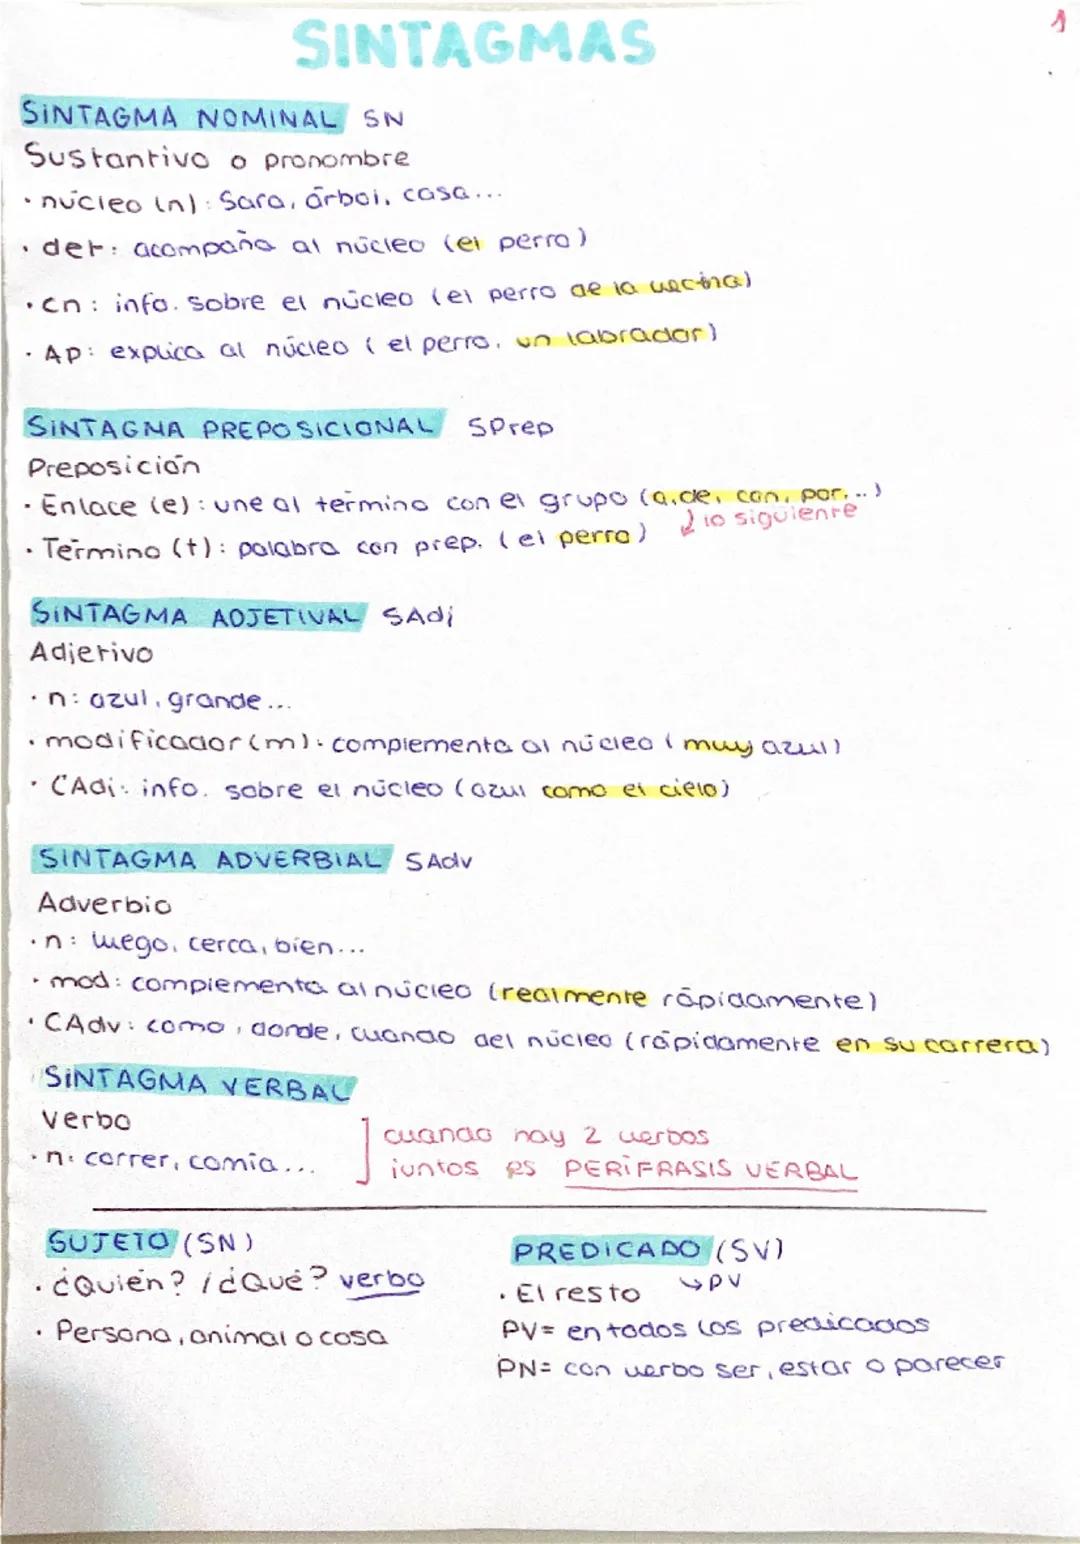 SINTAGMAS
1
SINTAGMA NOMINAL SN
Sustantivo o pronombre
· núcleo (n): Sara, árbol, casa...
· det: acompaña al núcleo (el perro)
· cn: info. sobre el núcleo (el perro de la vecina)
· Ap: explica al núcleo (el perro, un labrador)
SINTAGMA PREPOSICIONAL SPrep
Preposición
· Enlace (e): une al término con el grupo (a, de, con, por,...)
· Término (t): palabra con prep. (el perro) lo siguiente
SINTAGMA ADJETIVAL SAdj
Adjetivo
· n: azul, grande...
· modificador (m): complementa al núcleo (muy azul)
· CAdj: info. sobre el núcleo (azul como el cielo)
SINTAGMA ADVERBIAL SAdv
Adverbio
· n: luego, cerca, bien...
· mod: complementa al núcleo (realmente rápidamente)
· CAdv: como, donde, cuando del núcleo (rápidamente en su carrera)
SINTAGMA VERBAL
Verbo
· n: correr, comía...
cuando hay 2 verbos
juntos es PERIFRASIS VERBAL
SUJETO (SN)
· ¿Quién? / ¿Qué? verbo
· Persona, animal o cosa
PREDICADO (SV)
· El resto ↳ PV
PV= en todos los predicados
PN= con verbo ser, estar o parecer